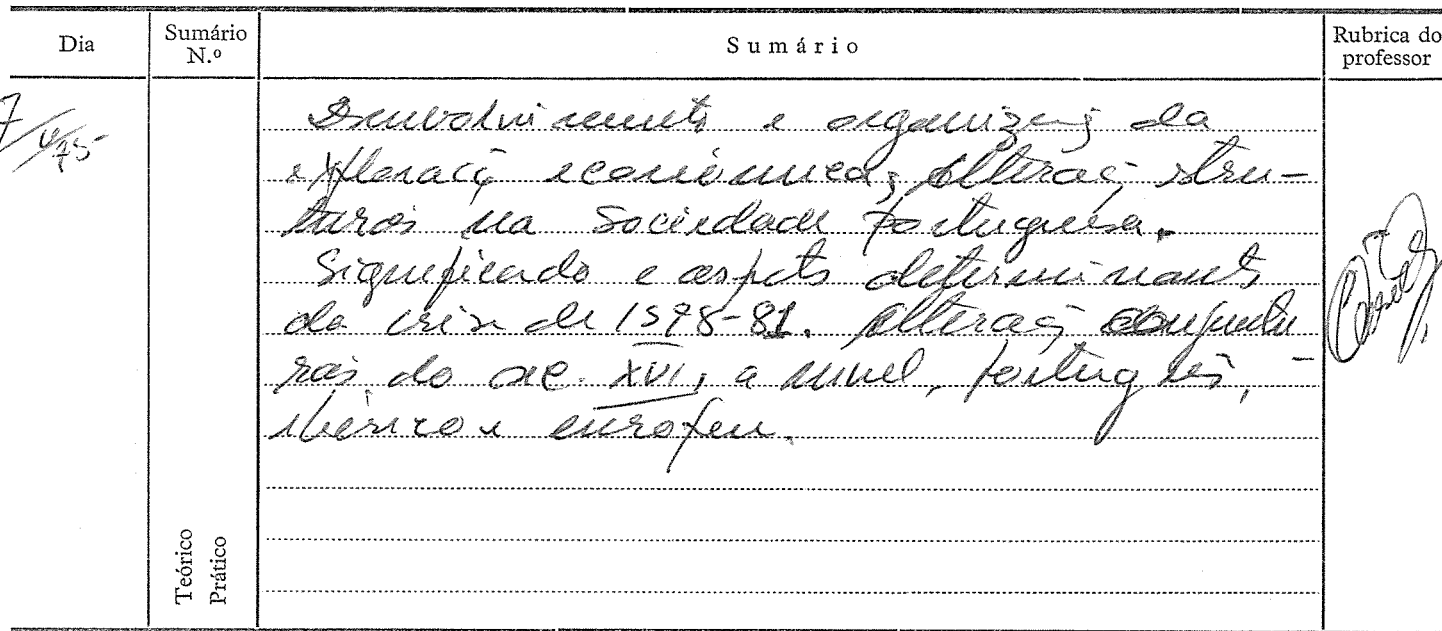 Dia
Sumário N.º
Sumário
Rubrica do professor
7/4/75
Desenvolvimento e organização da
exploração económica; alterações estru-
turais na Sociedade Portuguesa.
Significado e aspectos determinantes
da crise de 1578-81. Alterações conjuntu
rais do séc. XVI, a nível, português,
ibérico e europeu.
Teórico
Prático